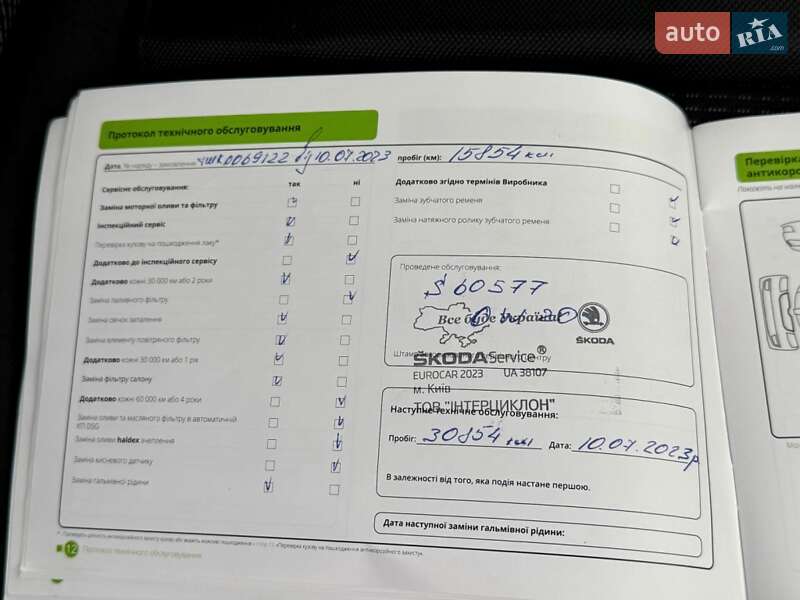 auto RIA.com
Протокол технічного обслуговування
Дата, № наряду – замовлення 10.07.2023
пробіг (км): 15854 км
Сервісне обслуговування: так ні
Заміна моторної оливи та фільтру
Інспекційний сервіс
Перевірка кузову на пошкодження лаку*
Додатково до інспекційного сервісу
Додатково кожні 30 000 км або 2 роки
Заміна паливного фільтру
Заміна свічок запалення
Заміна елементу повітряного фільтру
Додатково кожні 30 000 км або 1 рік
Заміна фільтру салону
Додатково кожні 60 000 км або 4 роки
Заміна оливи та масляного фільтру в автоматичній
КП DSG
Заміна оливи haldex зчеплення
Заміна кисневого датчику
Заміна гальмівної рідини
Додатково згідно термінів Виробника
Заміна зубчатого ременя
Заміна натяжного ролику зубчатого ременя
Проведене обслуговування:
60577
Все буде Україна
ŠKODA
ŠKODA Service®
EUROCAR 2023 UA 38107
м. Київ
ТОВ "ІНТЕРЦИКЛОН"
Наступне технічне обслуговування:
Пробіг: 30854 км Дата: 10.07.2023р
В залежності від того, яка подія настане першою.
Дата наступної заміни гальмівної рідини:
12 Протокол технічного обслуговування
Перевірка
антикоро